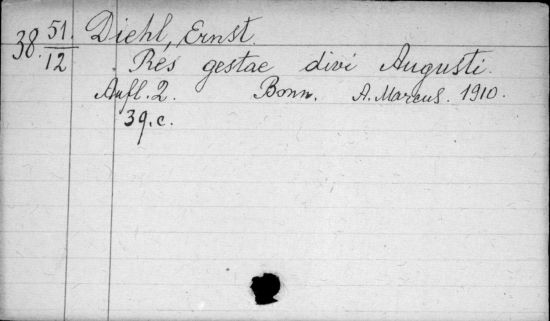 38. 51./12 Diehl, Ernst.
Res gestae divi Augusti.
Aufl. 2. Bonn. A. Marcus. 1910.
39. c.